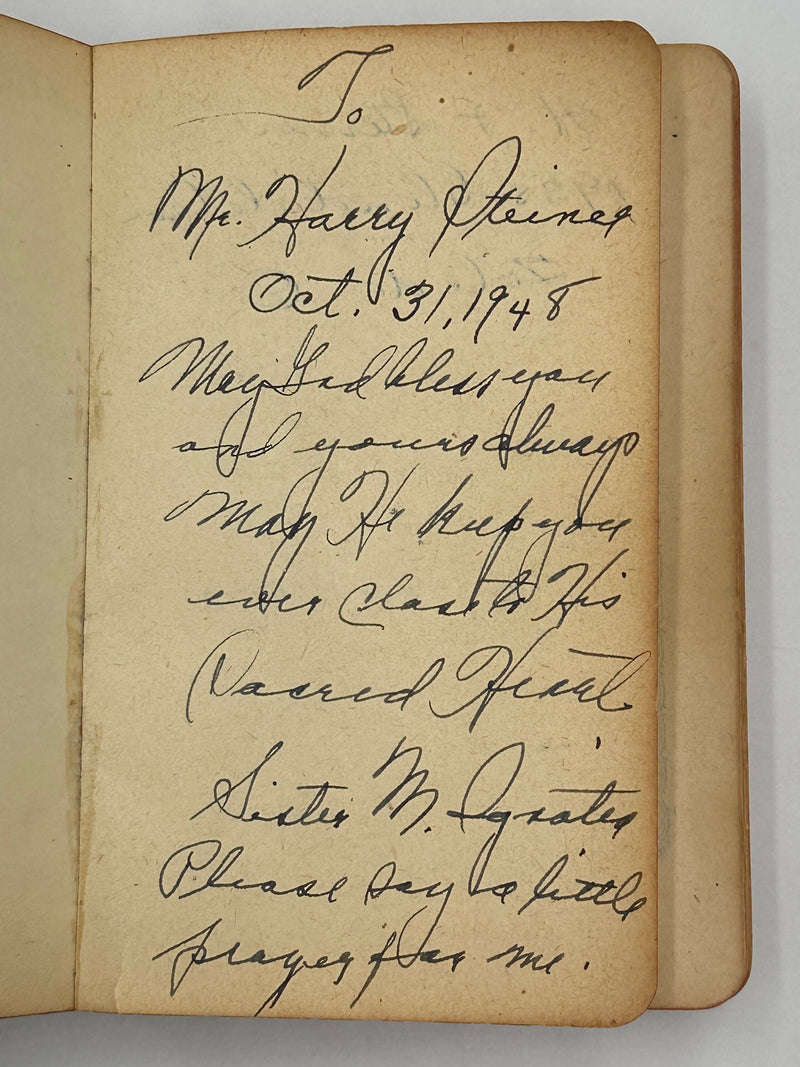 To
Mr. Harry
Oct. 31, 1948
May God bless you
and yours always
May He keep you
ever close to His
Sacred Heart
Sister M. Ignatia
Please say a little
prayer for me.